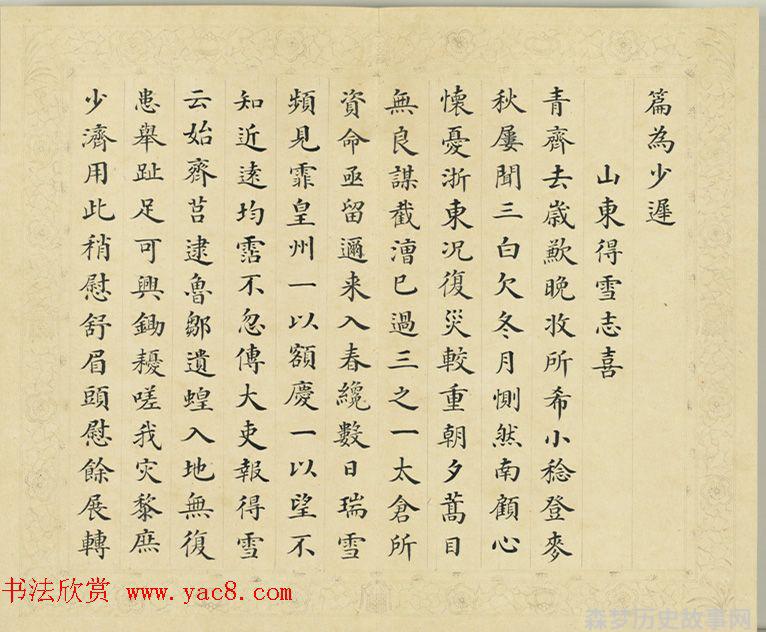 篇為少遲
山東得雪志喜
青齊去歲歉晚收所希小稔登麥
秋屢聞三白欠冬月惻然南顧心
懷憂浙東况復災較重朝夕蒿目
無良謀截漕已過三之一太倉所
資命亟留邇来入春纔數日瑞雪
頻見霏皇州一以額慶一以望不
知近遠均霑不忽傳大吏報得雪
云始齊莒逮魯鄒遺蝗入地無復
患舉趾足可興鋤耰嗟我灾黎庶
少濟用此稍慰舒眉頭慰餘展轉
书法欣赏 www.yac8.com
森梦历史故事网